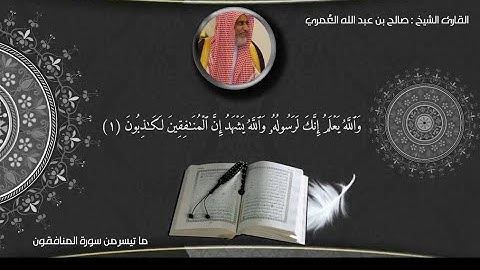 القارئ الشيخ : صالح بن عبد الله العُمري
وَٱللَّهُ يَعْلَمُ إِنَّكَ لَرَسُولُهُۥ وَٱللَّهُ يَشْهَدُ إِنَّ ٱلْمُنَـٰفِقِينَ لَكَـٰذِبُونَ (١)
ما تيسر من سورة المنافقون